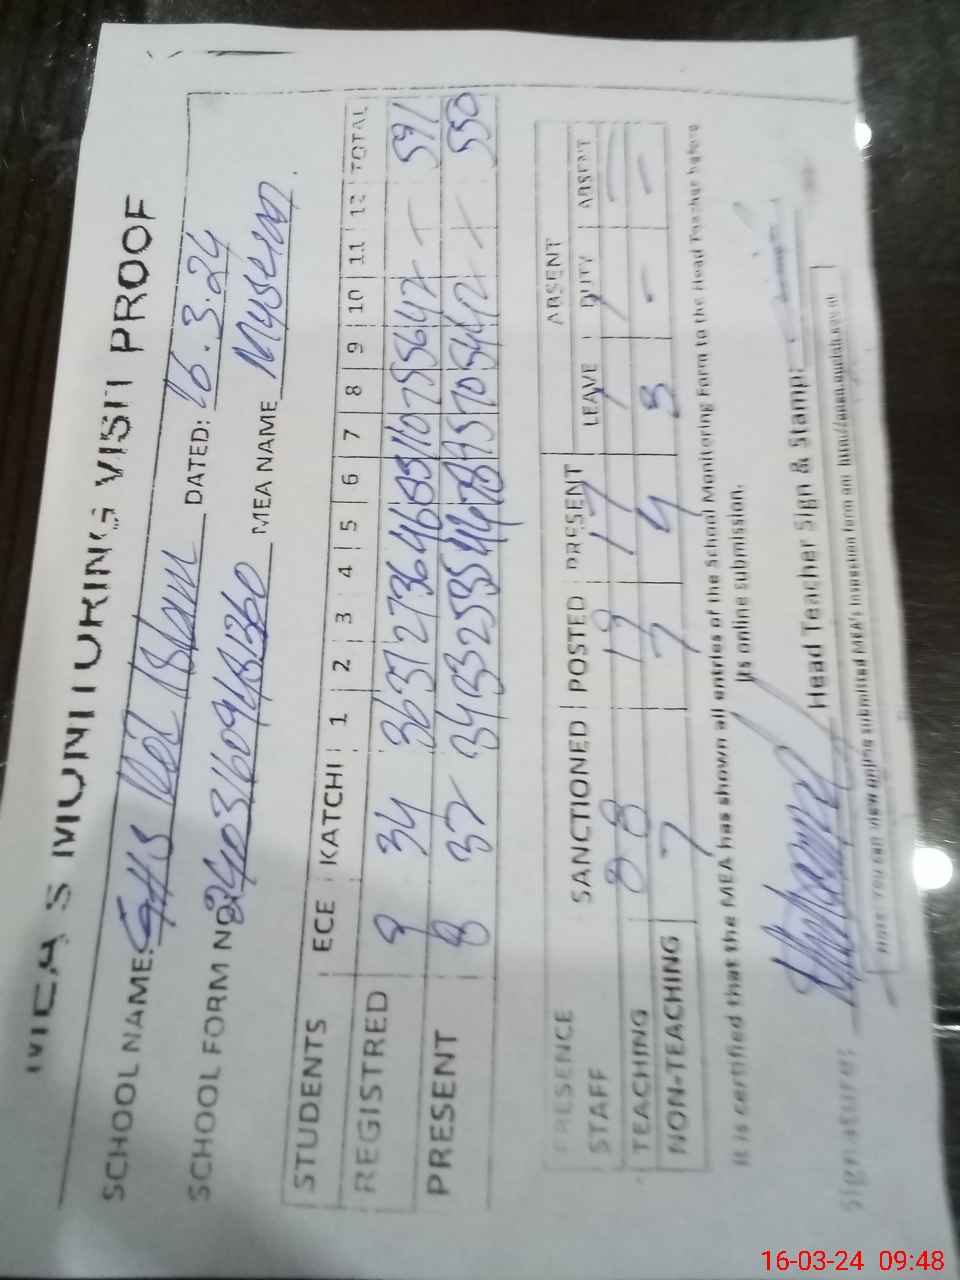 MEA'S MONITORING VISIT PROOF
SCHOOL NAME: GHS DATED: 16.3.24
SCHOOL FORM NO: MEA NAME
STUDENTS ECE KATCHI 1 2 3 4 5 6 7 8 9 10 11 12 TOTAL
REGISTRED 9 34 36 37 27 36 46 75 56 42 - 591
PRESENT 8 32 34 33 25 35 44 70 54 42 550
PRESENCE ABSENT
STAFF SANCTIONED POSTED PRESENT LEAVE DUTY ABSENT
TEACHING 19 17 1 1 -
NON-TEACHING 7 7 4 3 - -
It is certified that the MEA has shown all entries of the School Monitoring Form to the Head Teacher before
its online submission.
Signature: Head Teacher Sign & Stamp:
Note: You can view online submitted MEA's inspection form on:
16-03-24 09:48